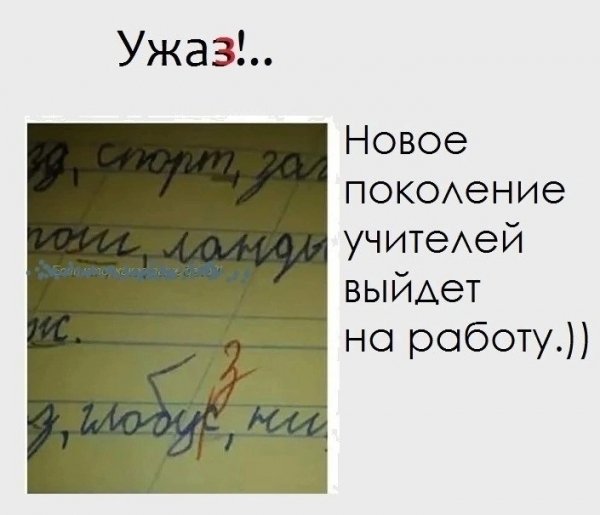 Ужаз!..
Новое
поколение
учителей
выйдет
на работу.))
зд, спорт, заг
пош, ланды
ж.
з
з, глобус, ни